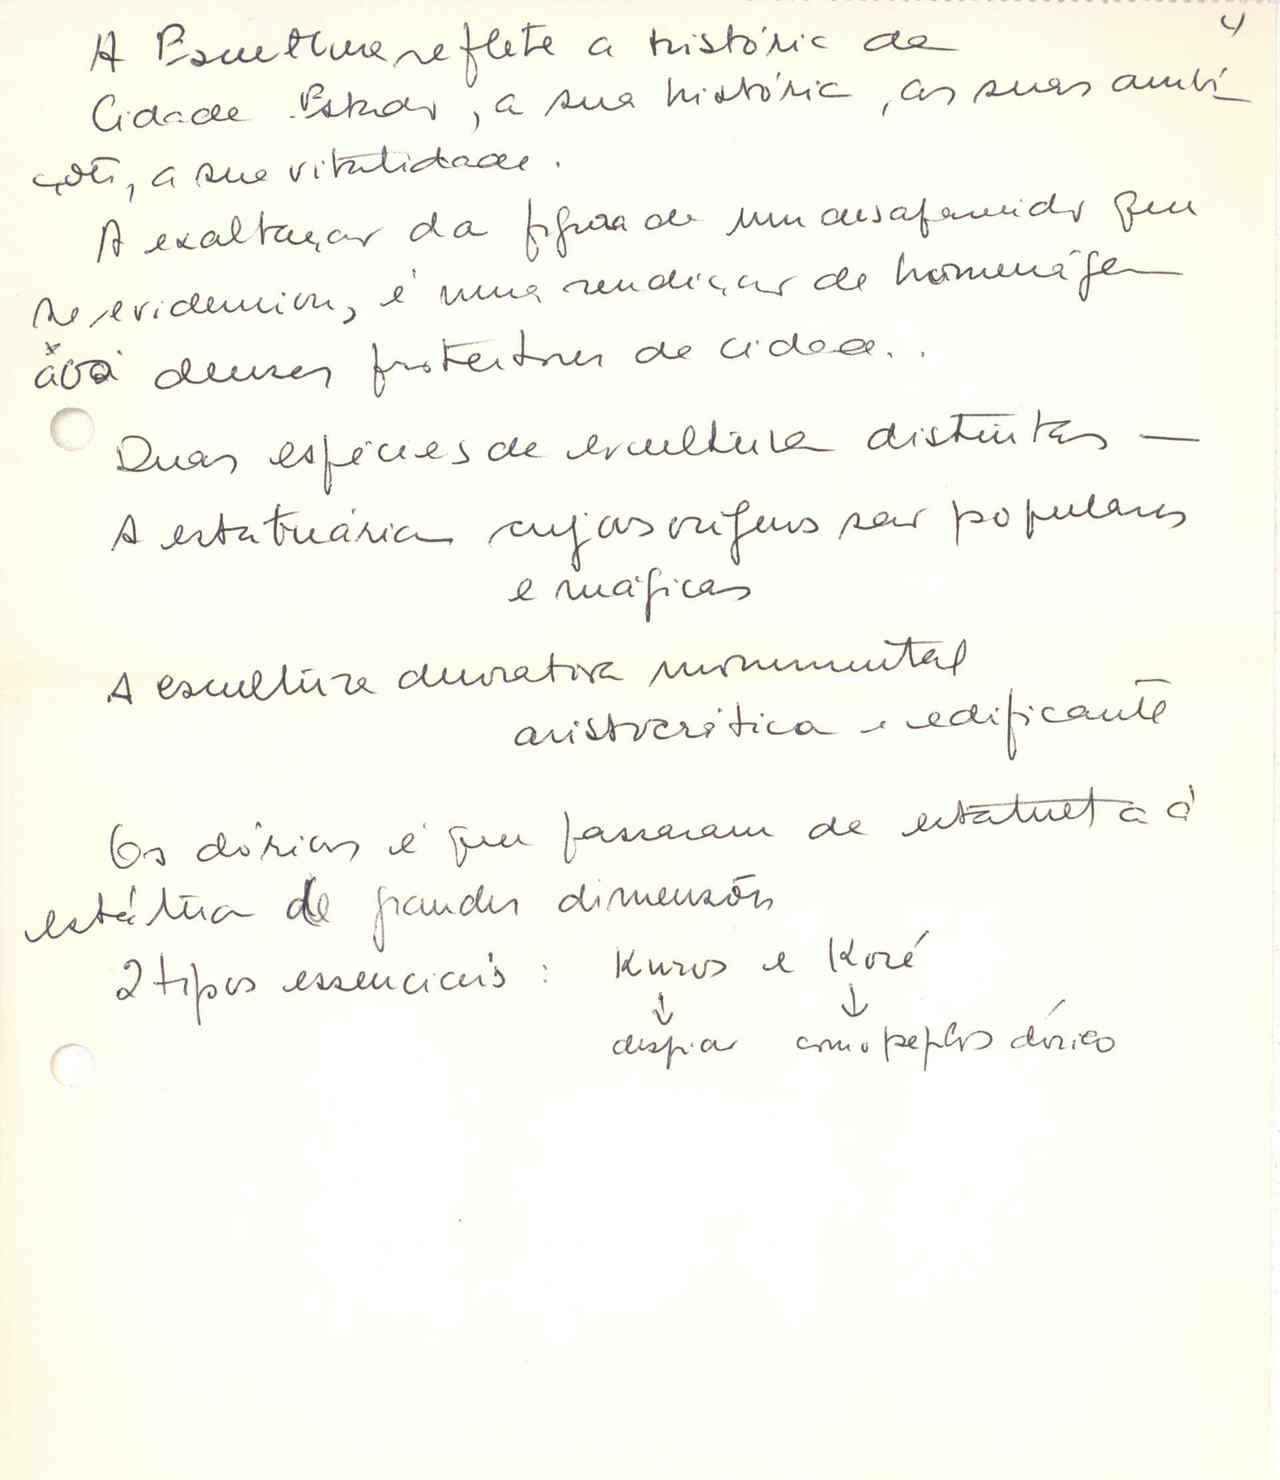 4
A Escultura reflete a história da
Cidade Estado, a sua história, as suas ambi-
ções, a sua vitalidade.
A exaltação da figura de um desaparecido que
se evidenciou, é uma rendição de homenagem
aos deuses protectores da cidade..
Duas espécies de escultura distintas —
A estatuária cujas origens são populares
e mágicas
A escultura decorativa monumental
aristocrática e edificante
Os dórios é que passaram de estatueta à
estátua de grandes dimensões
2 tipos essenciais : Kuros e Koré
↓ ↓
despido com o peplos dórico